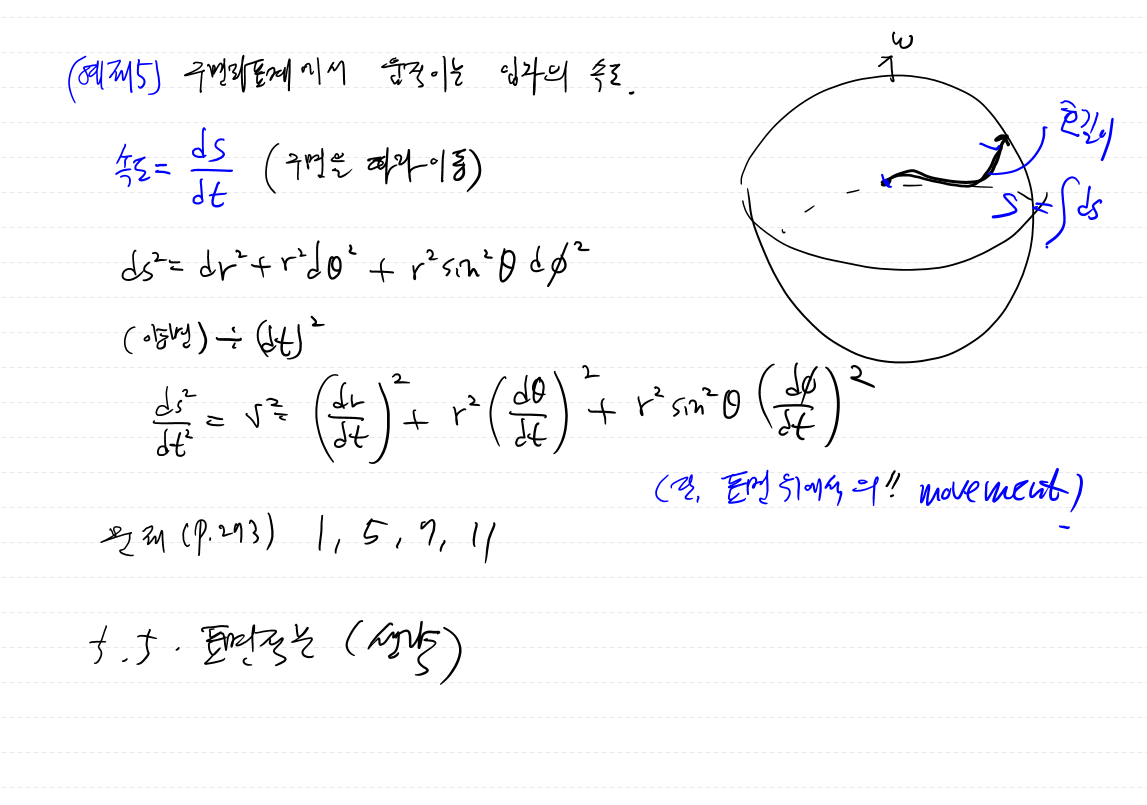 (예제5) 구면좌표계에서 움직이는 입자의 속도.
속도 = ds/dt (구면을 따라 이동)
ds² = dr² + r²dθ² + r² sin²θ dϕ²
(양변) ÷ (dt)²
ds²/dt² = v² = (dr/dt)² + r² (dθ/dt)² + r² sin²θ (dϕ/dt)²
(단, 표면 위에서의!! movement)
문제 (p.293) 1, 5, 9, 11
5.5. 표면적분 (생략)
ω
호길이
S = ∫ds